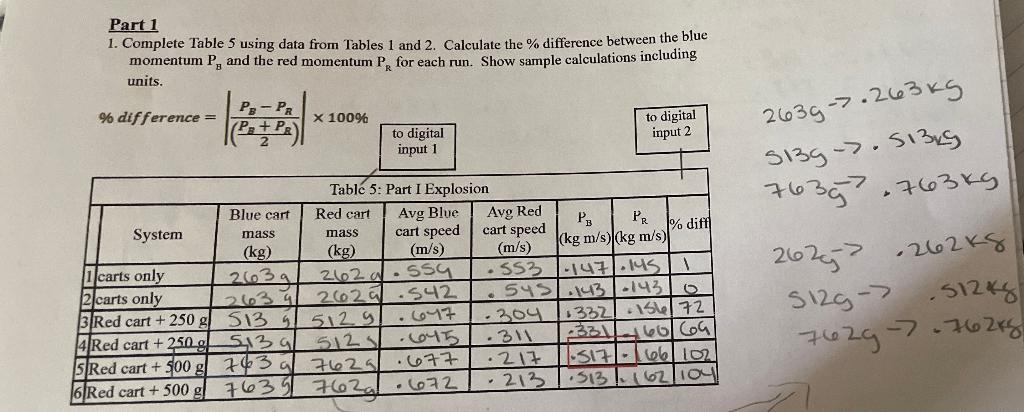 Part 1
1. Complete Table 5 using data from Tables 1 and 2. Calculate the % difference between the blue
momentum P_B and the red momentum P_R for each run. Show sample calculations including
units.
% difference = |(P_B − P_R) / ((P_B + P_R) / 2)| × 100%
to digital
input 1
to digital
input 2
Table 5: Part I Explosion
System | Blue cart mass (kg) | Red cart mass (kg) | Avg Blue cart speed (m/s) | Avg Red cart speed (m/s) | P_B (kg m/s) | P_R (kg m/s) | % diff
1 carts only | 263 g | 262 g | .559 | .553 | .147 | .145 | 1
2 carts only | 263 g | 262 g | .542 | .545 | .143 | .143 | 0
3 Red cart + 250 g | 513 g | 512 g | .647 | .304 | .332 | .156 | 72
4 Red cart + 250 g | 513 g | 512 g | .645 | .311 | .331 | .160 | 69
5 Red cart + 500 g | 763 g | 762 g | .677 | .217 | .517 | .166 | 102
6 Red cart + 500 g | 763 g | 762 g | .672 | .213 | .513 | .162 | 104
263g -> .263 kg
513g -> .513 kg
763g -> .763 kg
262g -> .262 kg
512g -> .512 kg
762g -> .762 kg